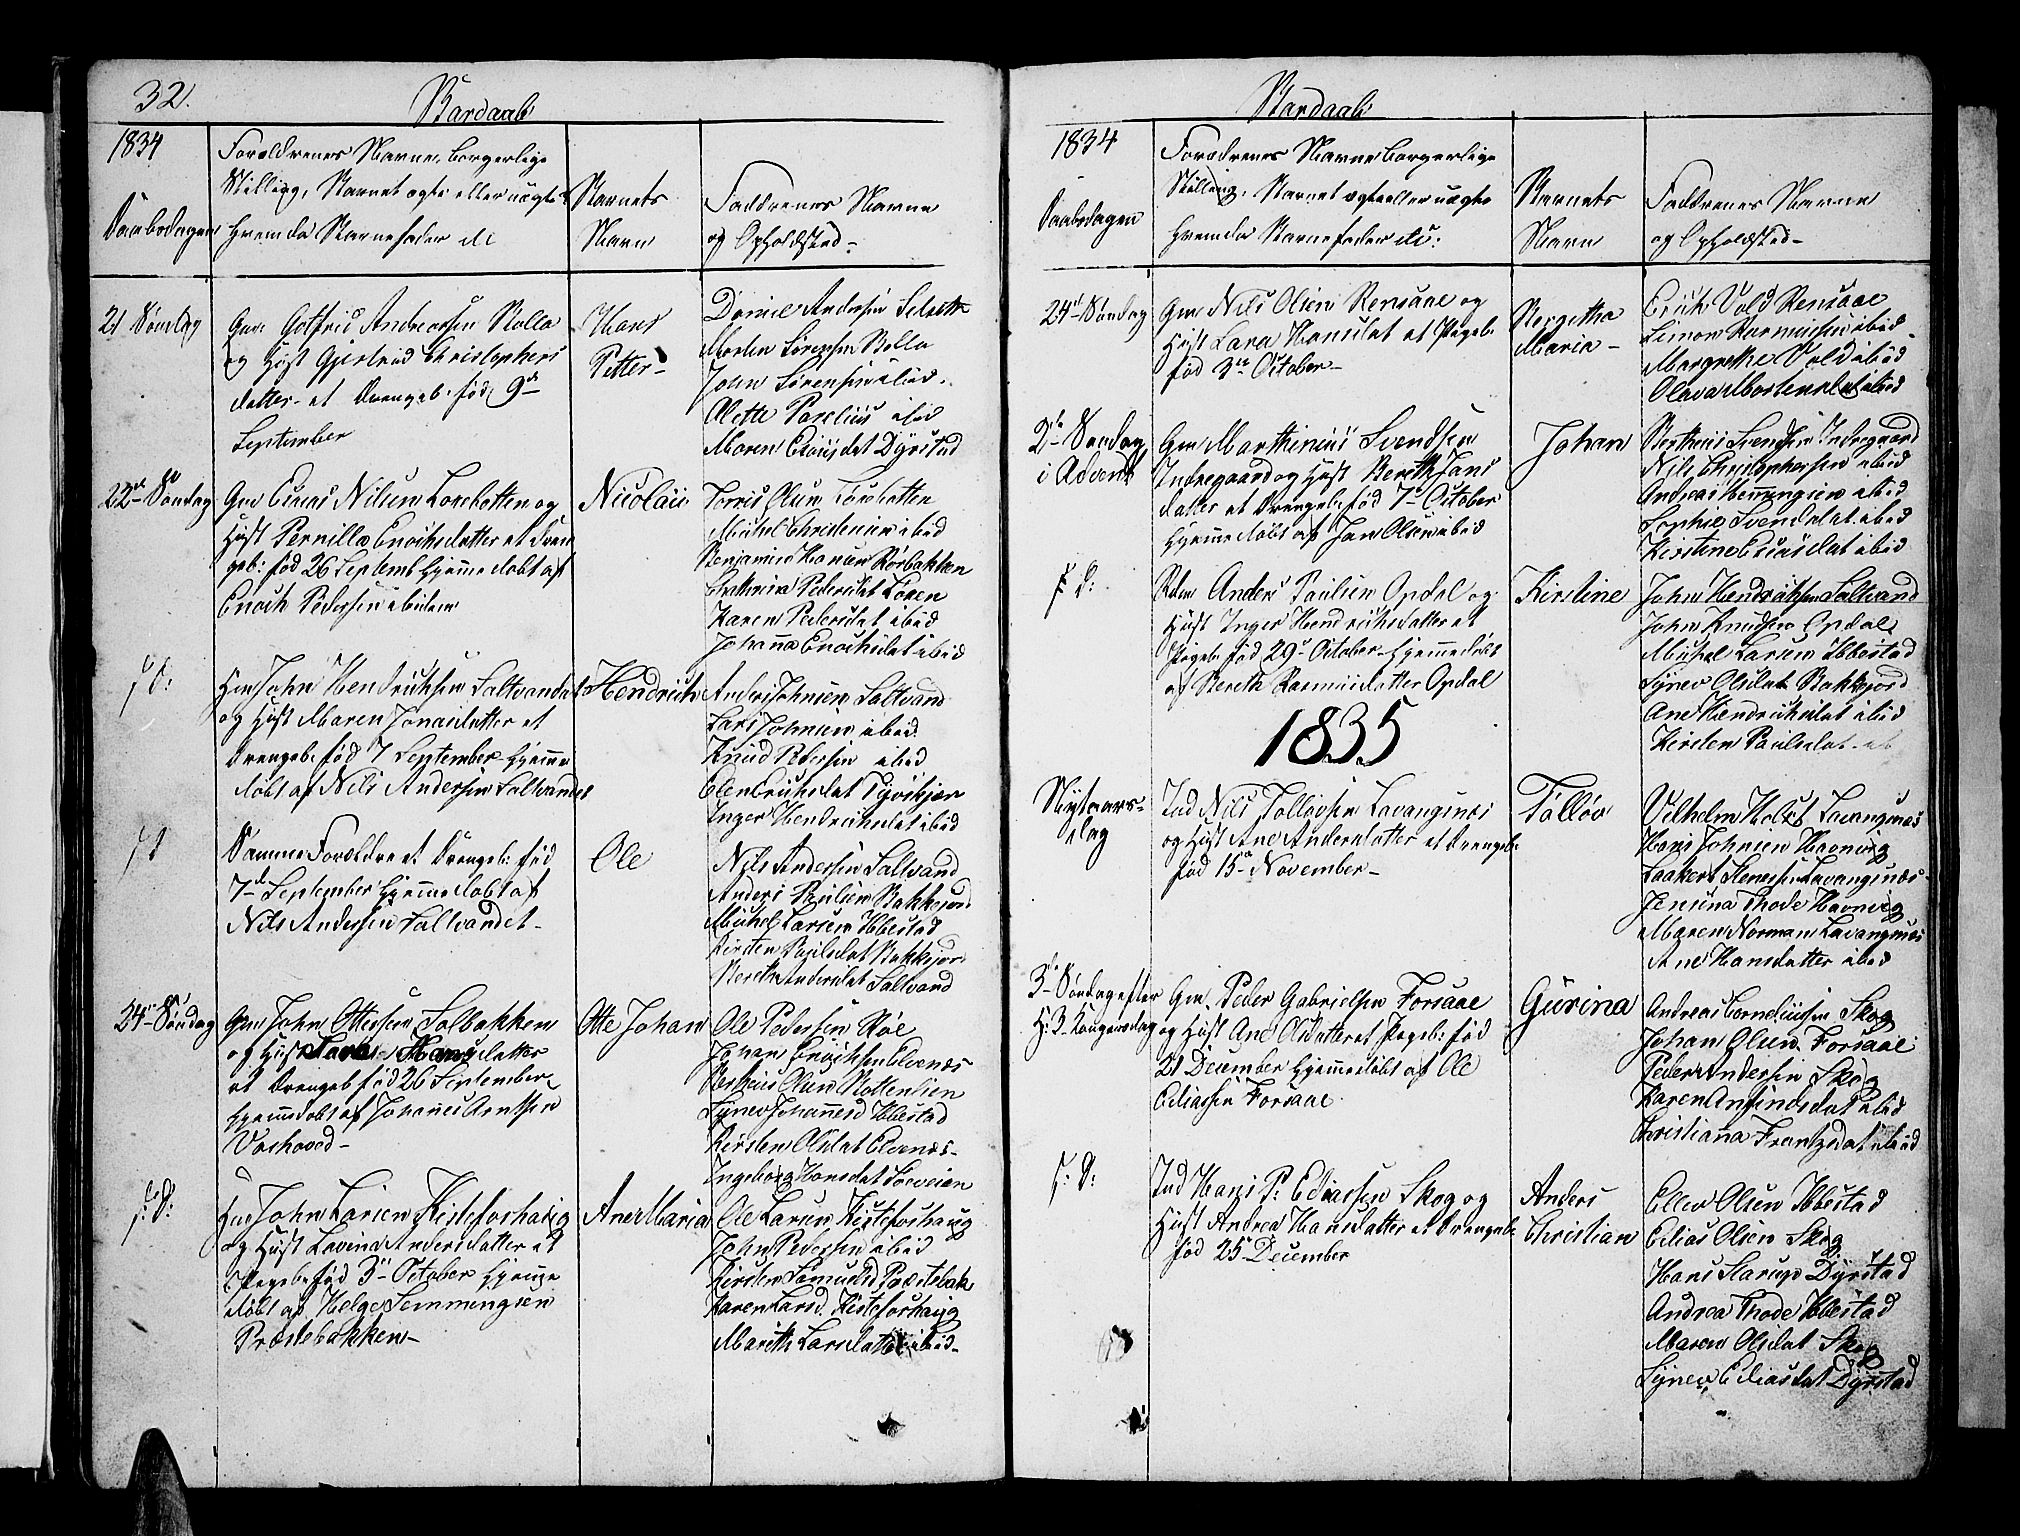 32.
Barnedaab
1834
Forældrenes Navne, borgerlige
Stilling, Barnet ægte eller uægte
Hvem da Barnefader etc
Daabsdagen
Barnets
Navn
Faddrenes Navne
og Opholdsted
21 Søndag
Gm: Gotfrid Andreasen Rolla
og Hust Gjertrud Christophers
datter et Drengeb: fød 9de
September
Hans
Petter
Daniel Andersen
Morten Sørensen Rolla
John Sørensen ibid.
Olette ibid
Maren dat Dyrstad
22de Søndag
Gm Esaias Nilsen Lorchbotten og
Hust Pernilla Enochsdatter et Dren
geb: fød 26 Septemb hjemmedøbt af
Enoch Pedersen ibidem
Nicolaii
Olsen
Michel Christensen ibid
Benjamin Hansen Rørbakken
Cathrina Pedersdat
Karen Pedersdat ibid
Johanna Enochsdat ibid
s: D:
Hm John Hendrichsen Saltvandet
og Hust Maren Jonasdatter et
Drengeb: fød 7 September hjemme
døbt af Nils Andersen Saltvandet
Hendrich
Anders Johnsen Saltvand
Lars Johnsen ibid.
Knud Pedersen ibid
Elen Erichsdat
Inger Hendrichsdat ibid
s D
Samme Forældre et Drengeb: fød
7de September hjemmedøbt af
Nils Andersen Saltvandet
Ole
Nils Andersen Saltvand
Anders Paulsen Bakkejord
Michel Larsen Ibbestad
Kirsten Paulsdat Bakkejor
Bereth Andersdat Saltvand
24de Søndag
Gm John Ottesen Solbakken
og Hust Hansdatter
et Drengeb fød 26 September
hjemmedøbt af Johannes Arntsen
Otte Johan
Ole Pedersen
Johan Enochsen Elvenæs
Olsen
Synev Johannesd Ibbestad
Kirsten Olsdat Elvenæs
Ingeborg Hansdat
s: D:
Hm John Larsen Kisteforhaug
og Hust Lavina Andersdatter et
Pigeb: fød 3de October hjemme
døbt af Helge Semmingsen
Præstebakken
Ane Maria
Ole Larsen Kisteforhaug
John Pedersen ibid
Kirsten Samuelsd Præstebak
Karen Larsd. Kisteforhaug
Mareth Larsdatter ibid
Barnedaab
1834
Forældrenes Navne borgerlige
Stilling, Barnet ægte eller uægte
Hvem da Barnefader etc:
Daabsdagen
Barnets
Navn
Faddrenes Navne
og Opholdsted
24de Søndag
Gm Nils Olsen Rensaae og
Hust Lava Hansdat et Pigeb:
fød 3de October
Bergitha
Maria
Erich Vold Rensaae
Simon Rasmusen ibid
Margrethe Vold ibid
Olava Mortensdat ibid
2de Søndag
i Advent
Gm Marthinus Svendsen
Indregaard og Hust Bereth Jans
datter et Drengeb: fød 7de October
hjemmedøbt af Jan Olsen ibid
Johan
Bertheus Svendsen Indregaard
Nils Christophersen ibid
Andreas Hemmingsen ibid
Sophie Svendsdat ibid
Kirstine Esaiasdat ibid
s D:
Anders Paulsen Opdal og
Hust Inger Hendrichsdatter et
Pigeb: fød 29de October hjemmedøbt
af Bereth Rasmusdatter Opdal
Kirstine
John Hendrichsen Saltvand
John Knudsen Opdal
Michel Larsen Ibbestad
Synev Olsdat Bakkejord
Ane Hendrichsdat ibid
Kirsten Paulsdat
1835
Nytaars-
dag
Ind Nils Tolløvsen Lavangsnæs
og Hust Ane Andersdatter et Drengeb:
fød 15de November
Tølløv
Vilhelm Holst Lavangsnæs
Hans Johnsen Havnvig
Lavangsnæs
Jensina Thode Havnvig
Maren Norman Lavangsnæs
Ane Hansdatter ibid
3de Søndag efter
H: 3 Kongersdag
Gm. Peder Gabrielsen Forsaae
og Hust Ane Olsdatter et Pigeb: fød
21 December hjemmedøbt af Ole
Eliassen Forsaae
Gurina
Andreas Corneliusen Skog
Johan Olsen Forsaae
Peder Andersen Skog
Karen Arfindsdat ibid
Christianna Frantzdat ibid
s: D:
Ind Hans P: Eliassen Skog og
Hust Andrea Hansdatter et Drengeb:
fød 25de December
Anders
Christian
Eller Olsen Ibbestad
Elias Olsen Skog
Hans Starup Dyrstad
Andrea Thode Ibbestad
Maren Olsdat Skog
Synev Eliasdat Dyrstad